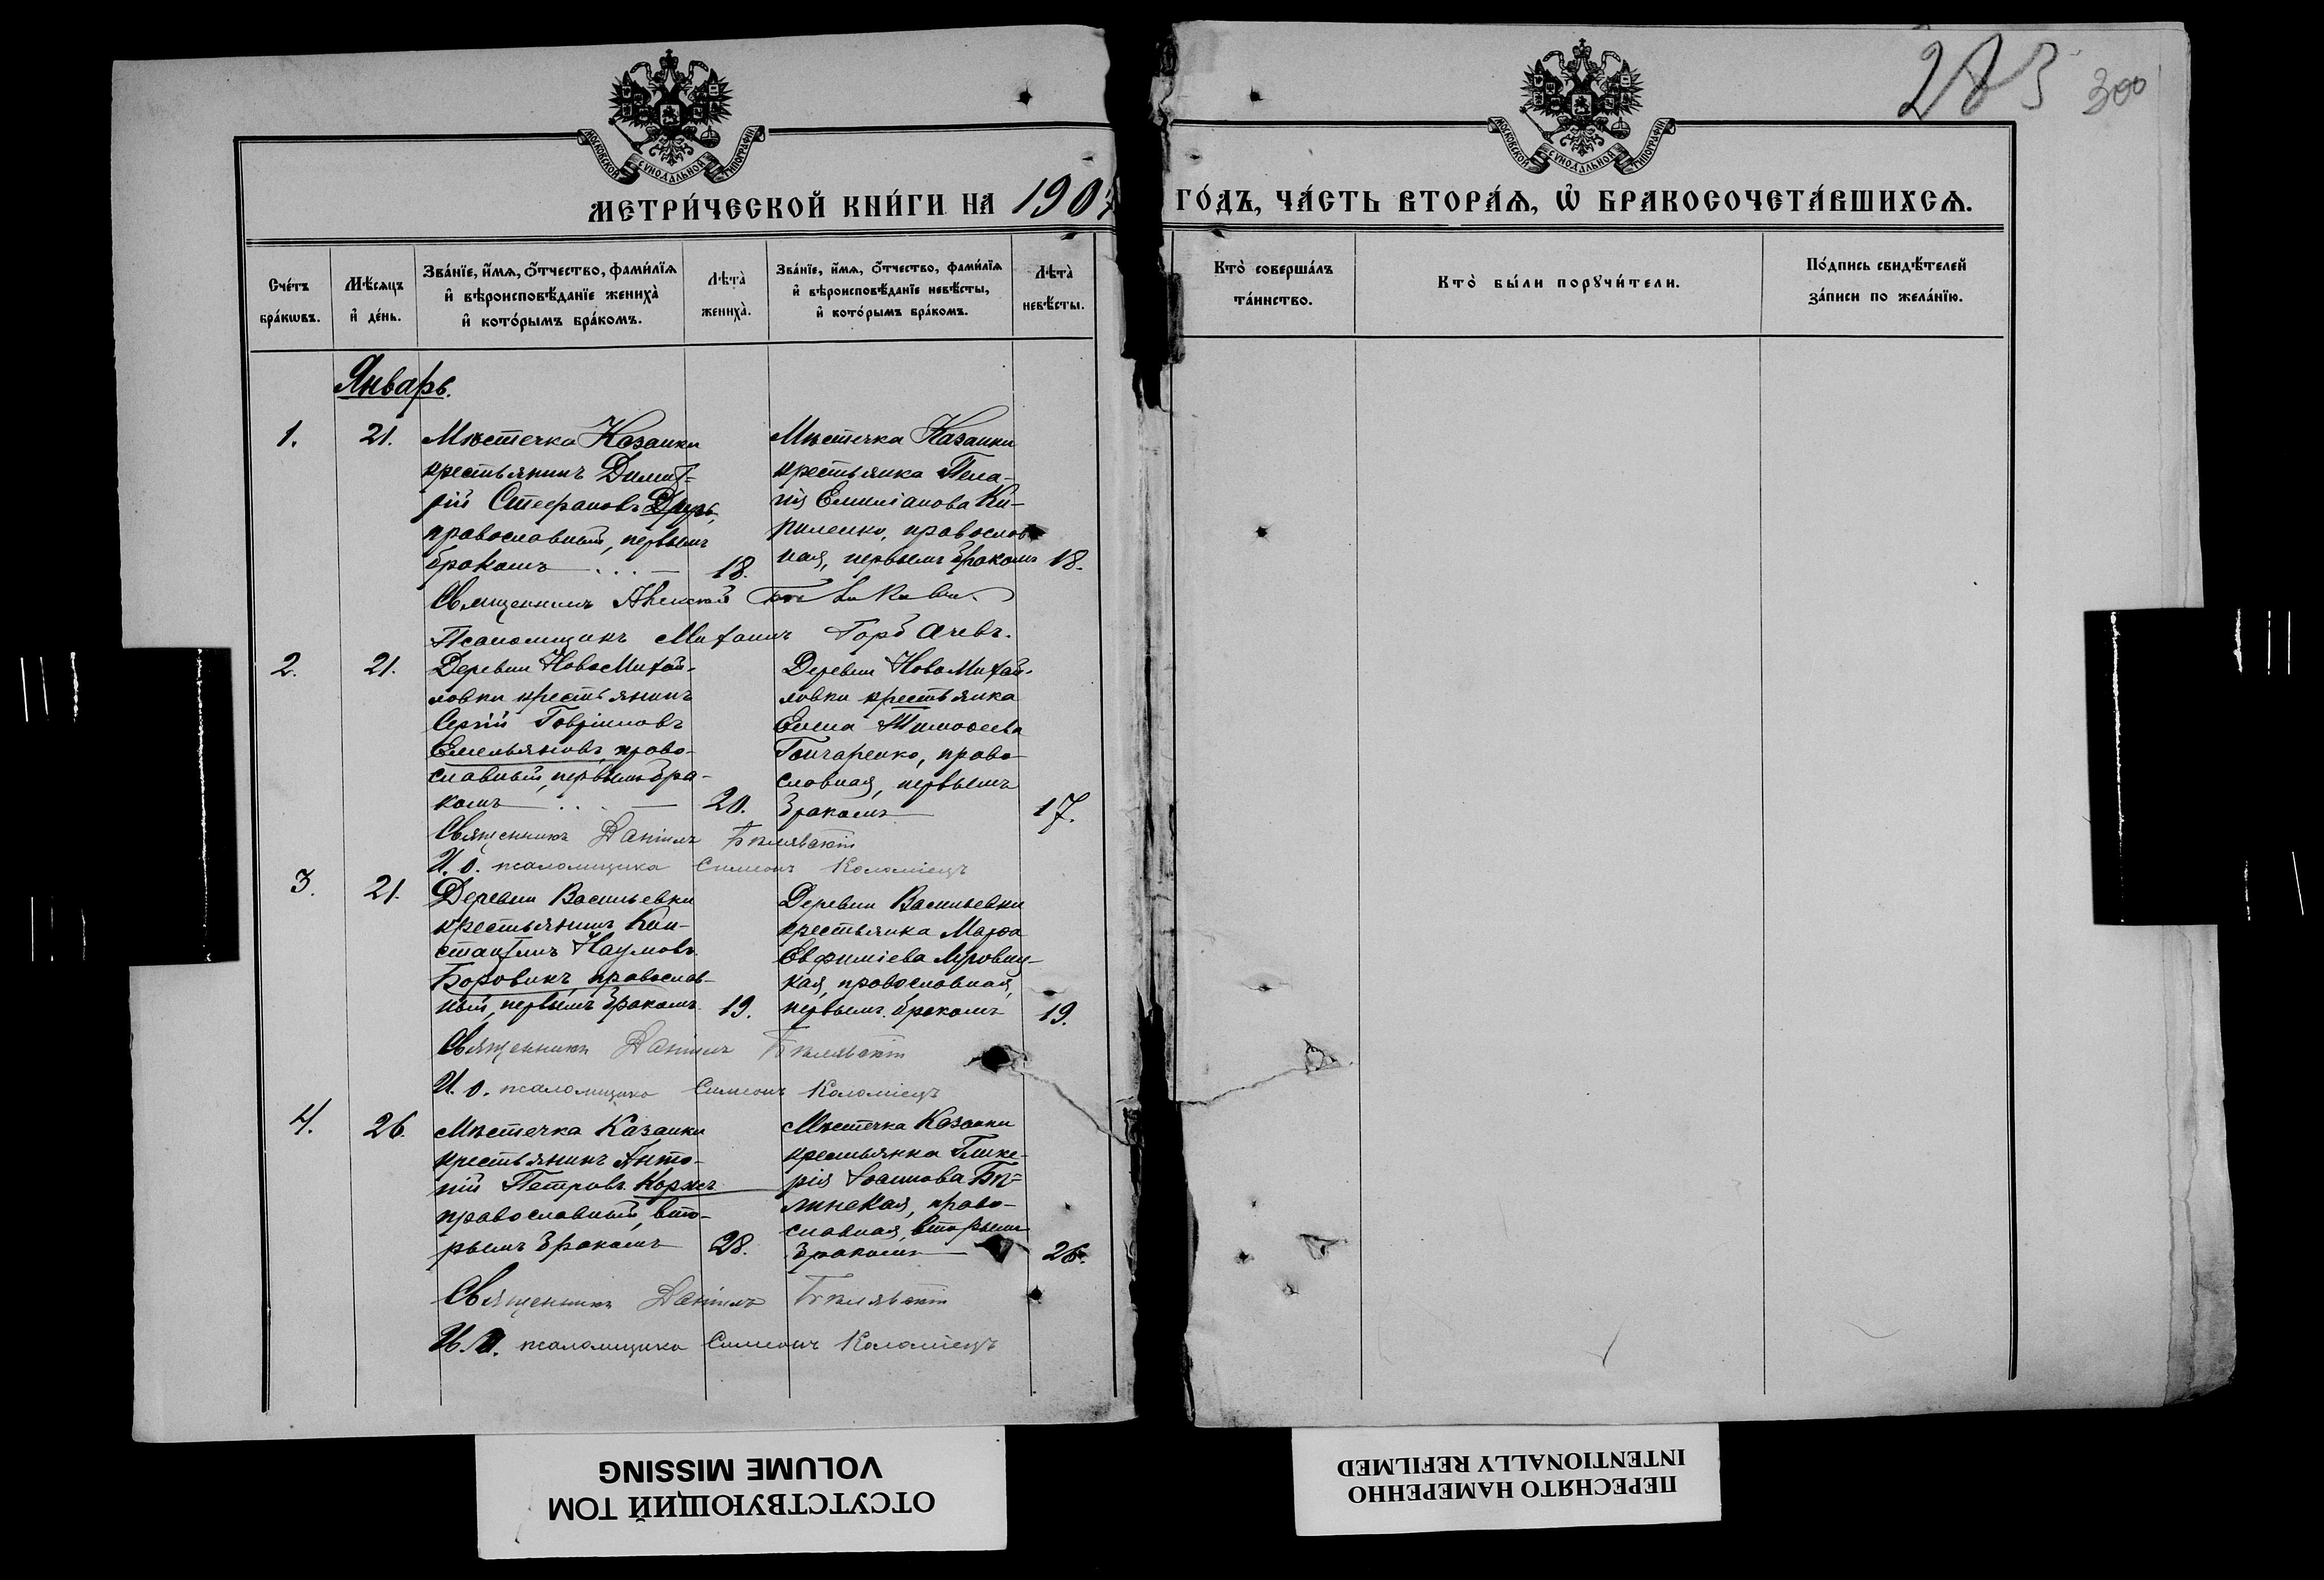 283 300
МОСКОВСКОЙ СѴНОДАЛЬНОЙ ТИПОГРАФІИ
МОСКОВСКОЙ СѴНОДАЛЬНОЙ ТИПОГРАФІИ
МЕТРИ́ЧЕСКОЙ КНИ́ГИ НА 1907 ГО́ДЪ, ЧА́СТЬ ВТОРА́Ѧ, Ѡ҆ БРАКОСОЧЕТА́ВШИХСѦ.
Сче́тъ бра́кѡвъ.
Мѣ́сѧцъ и҆ де́нь.
Зва́нїе, и҆́мѧ, ѻ҆́тчество, фами́лїѧ и҆ вѣроисповѣ́данїе жениха̀ и҆ кото́рымъ бра́комъ.
Лѣта̀ жениха̀.
Зва́нїе, и҆́мѧ, ѻ҆́тчество, фами́лїѧ и҆ вѣроисповѣ́данїе невѣ́сты, и҆ кото́рымъ бра́комъ.
Лѣта̀ невѣ́сты.
Кто̀ соверша́лъ та́инство.
Кто̀ бы́ли порꙋчи́тели.
По́дпись свидѣ́телей за́писи по жела́нїю.
Январь.
1. 21.
Мѣстечка Казанки
крестьянинъ Димит-
рій Стефановъ Друзь,
православный, первымъ
бракомъ 18.
Мѣстечка Казанки
крестьянка Пела-
гія Емиліанова Ки-
риленко, православ
ная, первымъ бракомъ 18.
Священникъ Алексій
Псаломщикъ Михаилъ Горбачевъ.
2. 21.
Деревни НовоМихай-
ловки крестьянинъ
Сергій Гавріиловъ
Емельяновъ, право-
славный, первымъ бра-
комъ 20.
Деревни НовоМихай-
ловки крестьянка
Елена Тимоѳеева
Гончаренко, право-
славная, первымъ
бракомъ 17.
Священникъ Даніилъ
И. о. псаломщика Симеонъ Коломіецъ
3. 21.
Деревни Васильевки
крестьянинъ Кон-
стантинъ Наумовъ
Боровикъ, православ-
ный, первымъ бракомъ 19.
Деревни Васильевки
крестьянка Марѳа
Евфиміева Муровиц-
кая, православная,
первымъ бракомъ 19.
Священникъ Даніилъ
И. о. псаломщика Симеонъ Коломіецъ
4. 26.
Мѣстечка Казанки
крестьянинъ Анто-
ній Петровъ Коржъ
православный, вто-
рымъ бракомъ 28.
Мѣстечка Казанки
крестьянка Глике-
рія Іоаннова Бѣ-
линская, право-
славная, вторымъ
бракомъ 26.
Священникъ Даніилъ
И. о. псаломщика Симеонъ Коломіецъ
ОТСУТСТВУЮЩИЙ ТОМ
VOLUME MISSING
ПЕРЕСНЯТО НАМЕРЕННО
INTENTIONALLY REFILMED